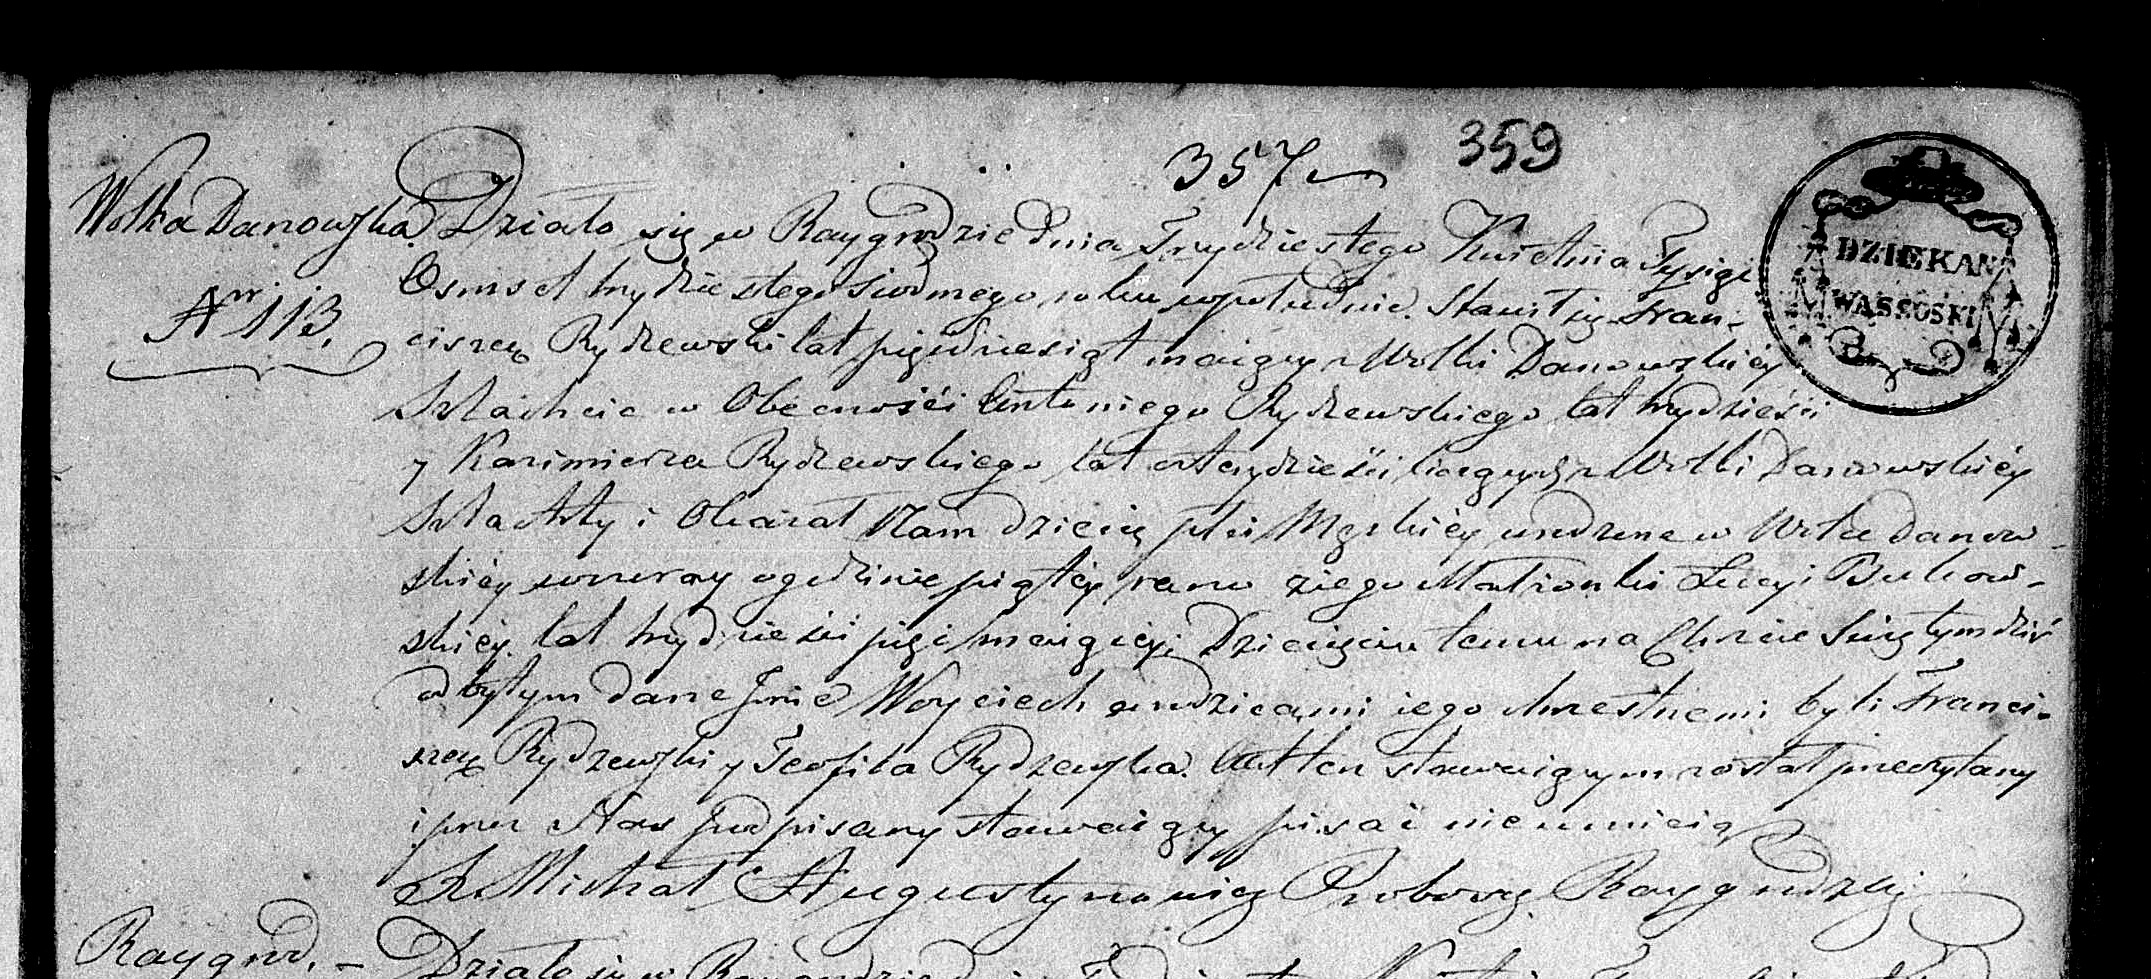 357
359
DZIEKAN
WĄSSOSKI
Wolka Danowska.
Nr 113.
Działo się w Raygrodzie dnia Trzydziestego Kwietnia Tysiąc
Osmset trzydziestego siodmego roku wpołudnie. Stawił się Fran-
ciszek Rydzewski lat pięcdziesiąt maiący z Wolki Danowskiéy
Szlachcic w Obecności Antoniego Rydzewskiego lat trzydzieści
y Kazimierza Rydzewskiego lat czterydzieści liczących z Wolki Danowskiéy
Szlachty i Okazał Nam dziecię płci Męzkiéy urodzone w Wolce Danow-
skiéy wczoray ogodzinie piątéy rano ziego Małżonki Lucyi Bukow-
skiéy. lat trzydzieści pięć maiącéy. Dziecięciu temu na Chrzcie Swiętym dziś
odbytym dane Jmie Woyciech a rodzicami iego chrzestnemi byli Franci-
szek Rydzewski y Teofila Rydzewska. Akt ten stawaiącym został przeczytany
i przez Nas podpisany stawaiący pisać nieumieią
X. Michał Augustynowicz Proboszcz Raygrodzki
Raygrod. -
Działo się w Raygrodzie